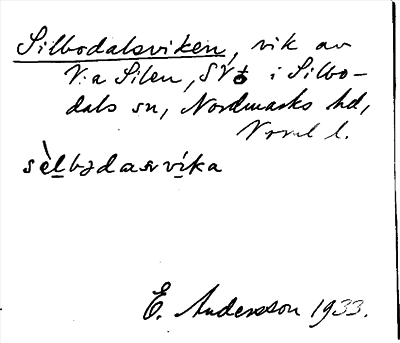 Silbodalsviken, vik av
V:a Silen, SV ♁ i Silbo-
dals sn, Nordmarks hd,
Vrml l.
sèlbɔdasrvíka
E. Andersson 1933.